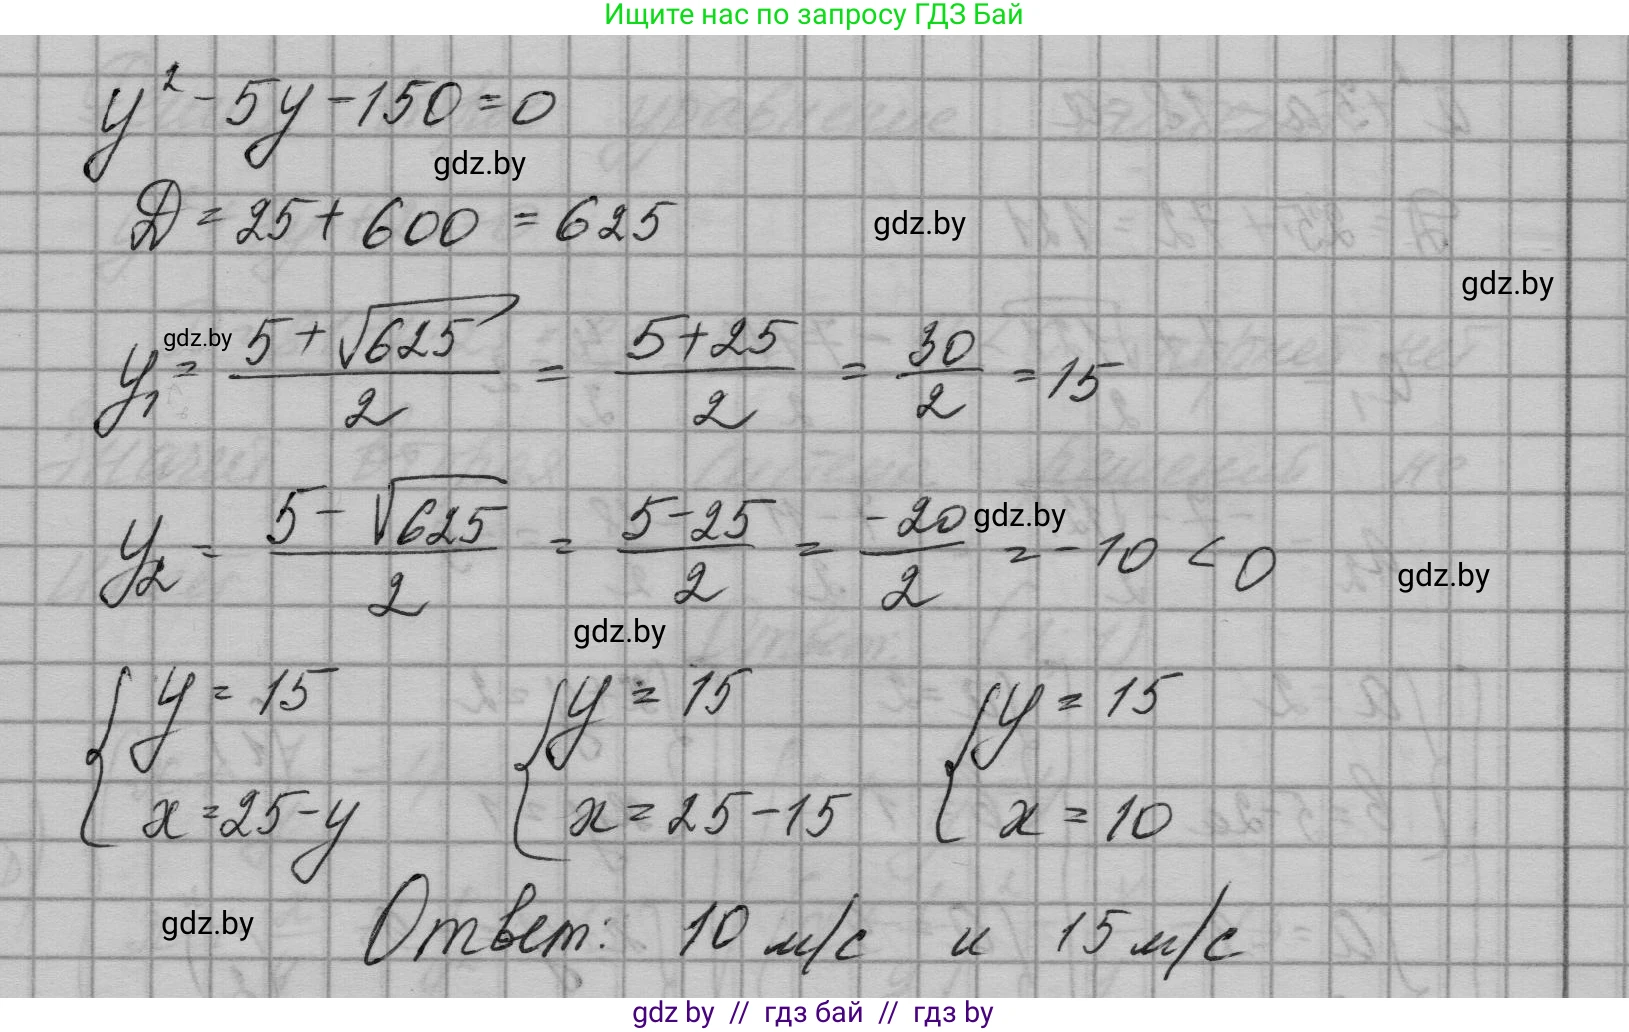 Ищите нас по запросу ГДЗ Бай
y² - 5y - 150 = 0
gdz.by
D = 25 + 600 = 625
gdz.by
gdz.by
gdz.by
y₁ = (5 + √625)/2 = (5 + 25)/2 = 30/2 = 15
y₂ = (5 - √625)/2 = (5 - 25)/2 = -20/2 = -10 < 0
gdz.by
gdz.by
gdz.by
{ y = 15 { y = 15 { y = 15
x = 25 - y x = 25 - 15 x = 10
gdz.by
Ответ: 10 м/с и 15 м/с
gdz.by // гдз бай // гдз by